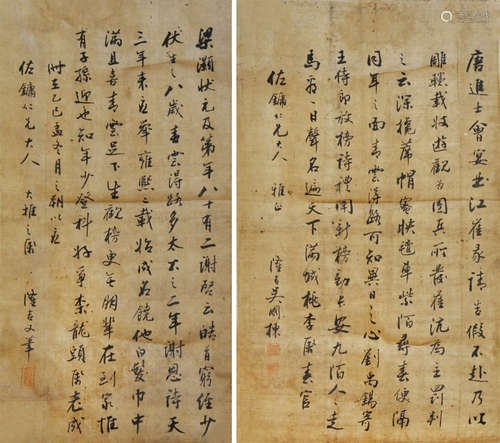 唐進士會宴曲江崔彖請告假不赴乃以
雕幰載妓遊觀為團兵所發崔沆為主罰判
之云深攙席帽密映氈車紫陌尋春便隔
同年之面青雲得路可知異日之心劉禹錫寄
王侍郎放榜詩禮闈新榜動長安九陌人人走
馬看一日聲名遍天下滿城桃李屬春官
佐鏞仁兄大人 雅正
吳 棟
梁灝狀元及第年八十有二謝啓云皓首窮經少
伏生之八歲青雲得路多太公之二年謝恩詩天
三年來應舉雍熙二載始成名饒他白髮巾中
滿且喜青雲足下生觀榜更無朋輩在到家惟
有子孫迎也知年少登科好爭柰龍頭屬老成
時在乙巳孟冬月之朔以應
佐鏞仁兄大人 大雅之屬 又筆